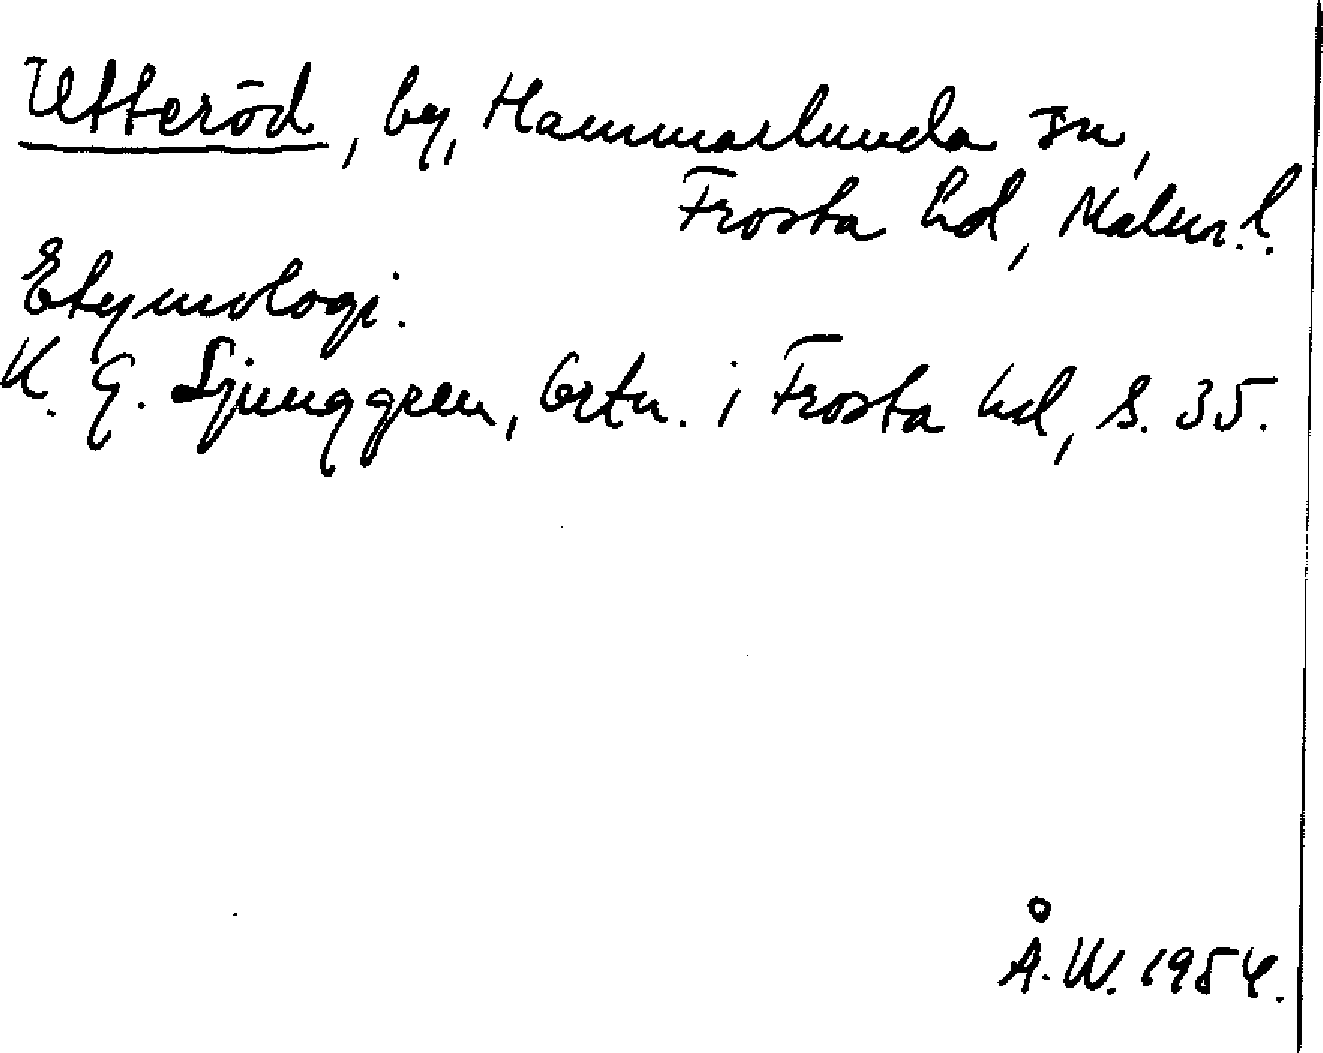 Utteröd, by, Hammarlunda sn,
Frosta hd, Malm. l.
Etymologi.
K. G. Ljunggren, Ortn. i Frosta hd, s. 35.
Å. W. 1954.